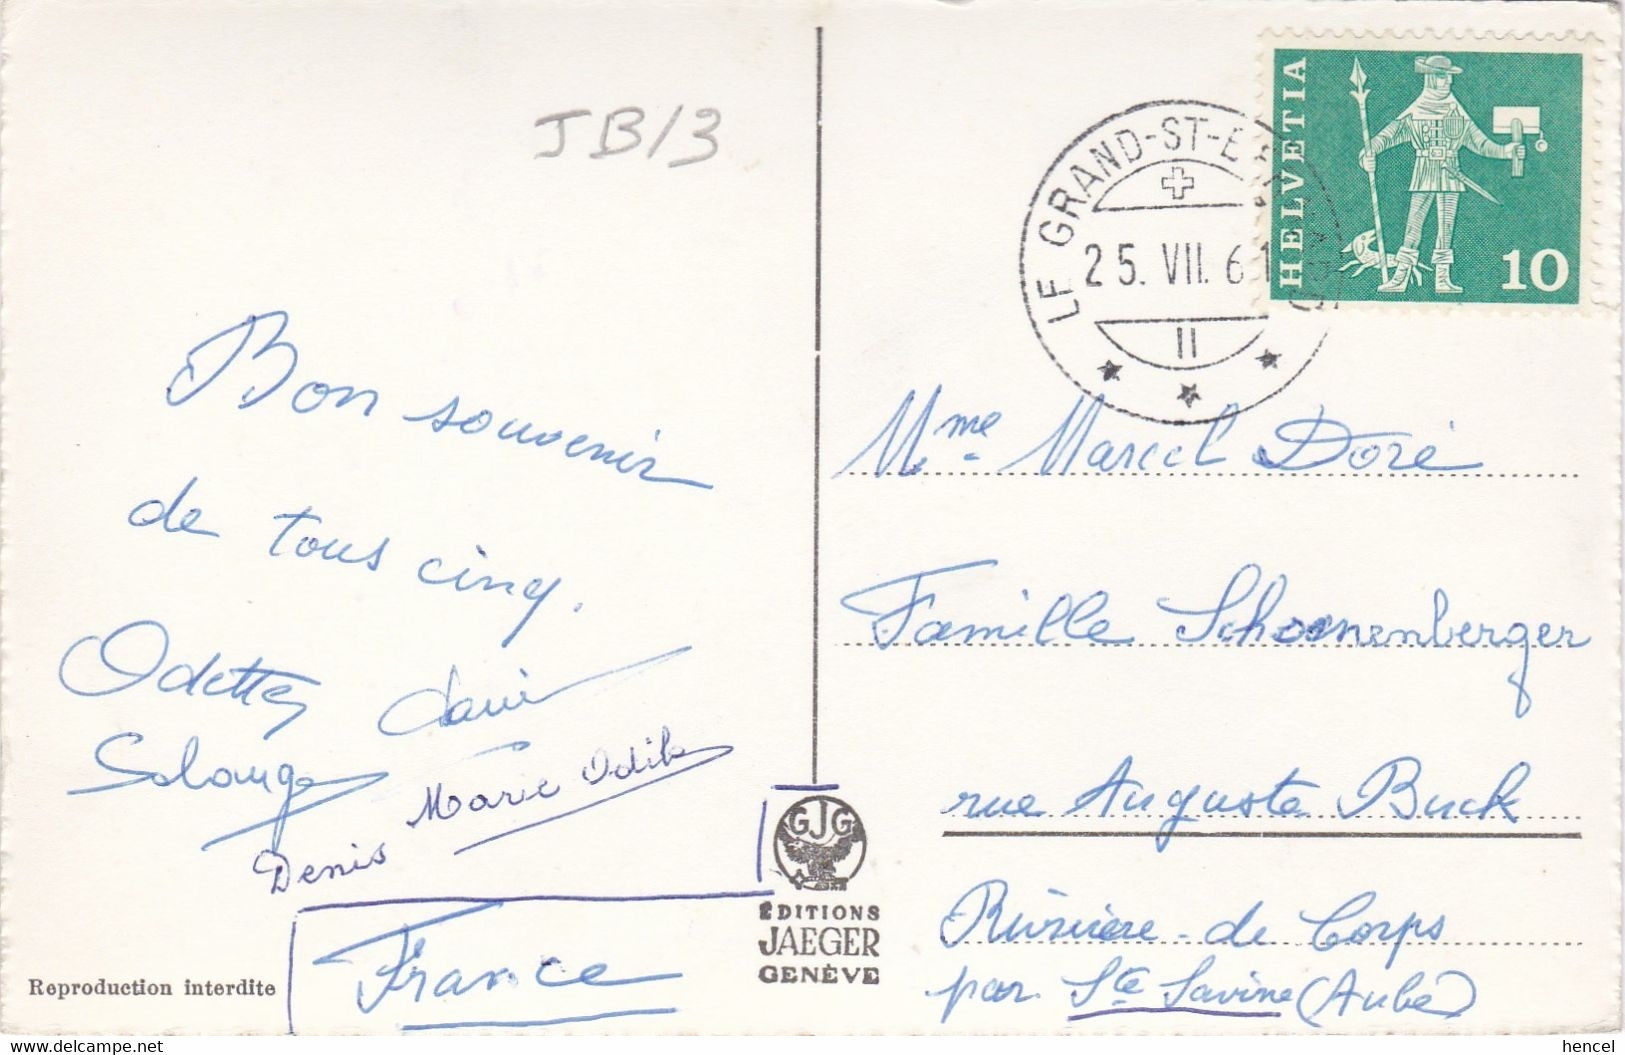 JB/3
Bon souvenir
de tous cinq.
Odette
Solange
Denis
Marie Odile
France
Reproduction interdite
GJG
ÉDITIONS
JAEGER
GENÈVE
HELVETIA
10
LE GRAND-ST-
25.VII.61
II
Mme Marcel Doré
Famille Schoenenberger
rue Auguste Buck
Rivière-de Corps
par Ste Savine (Aube)
www.delcampe.net
hencel